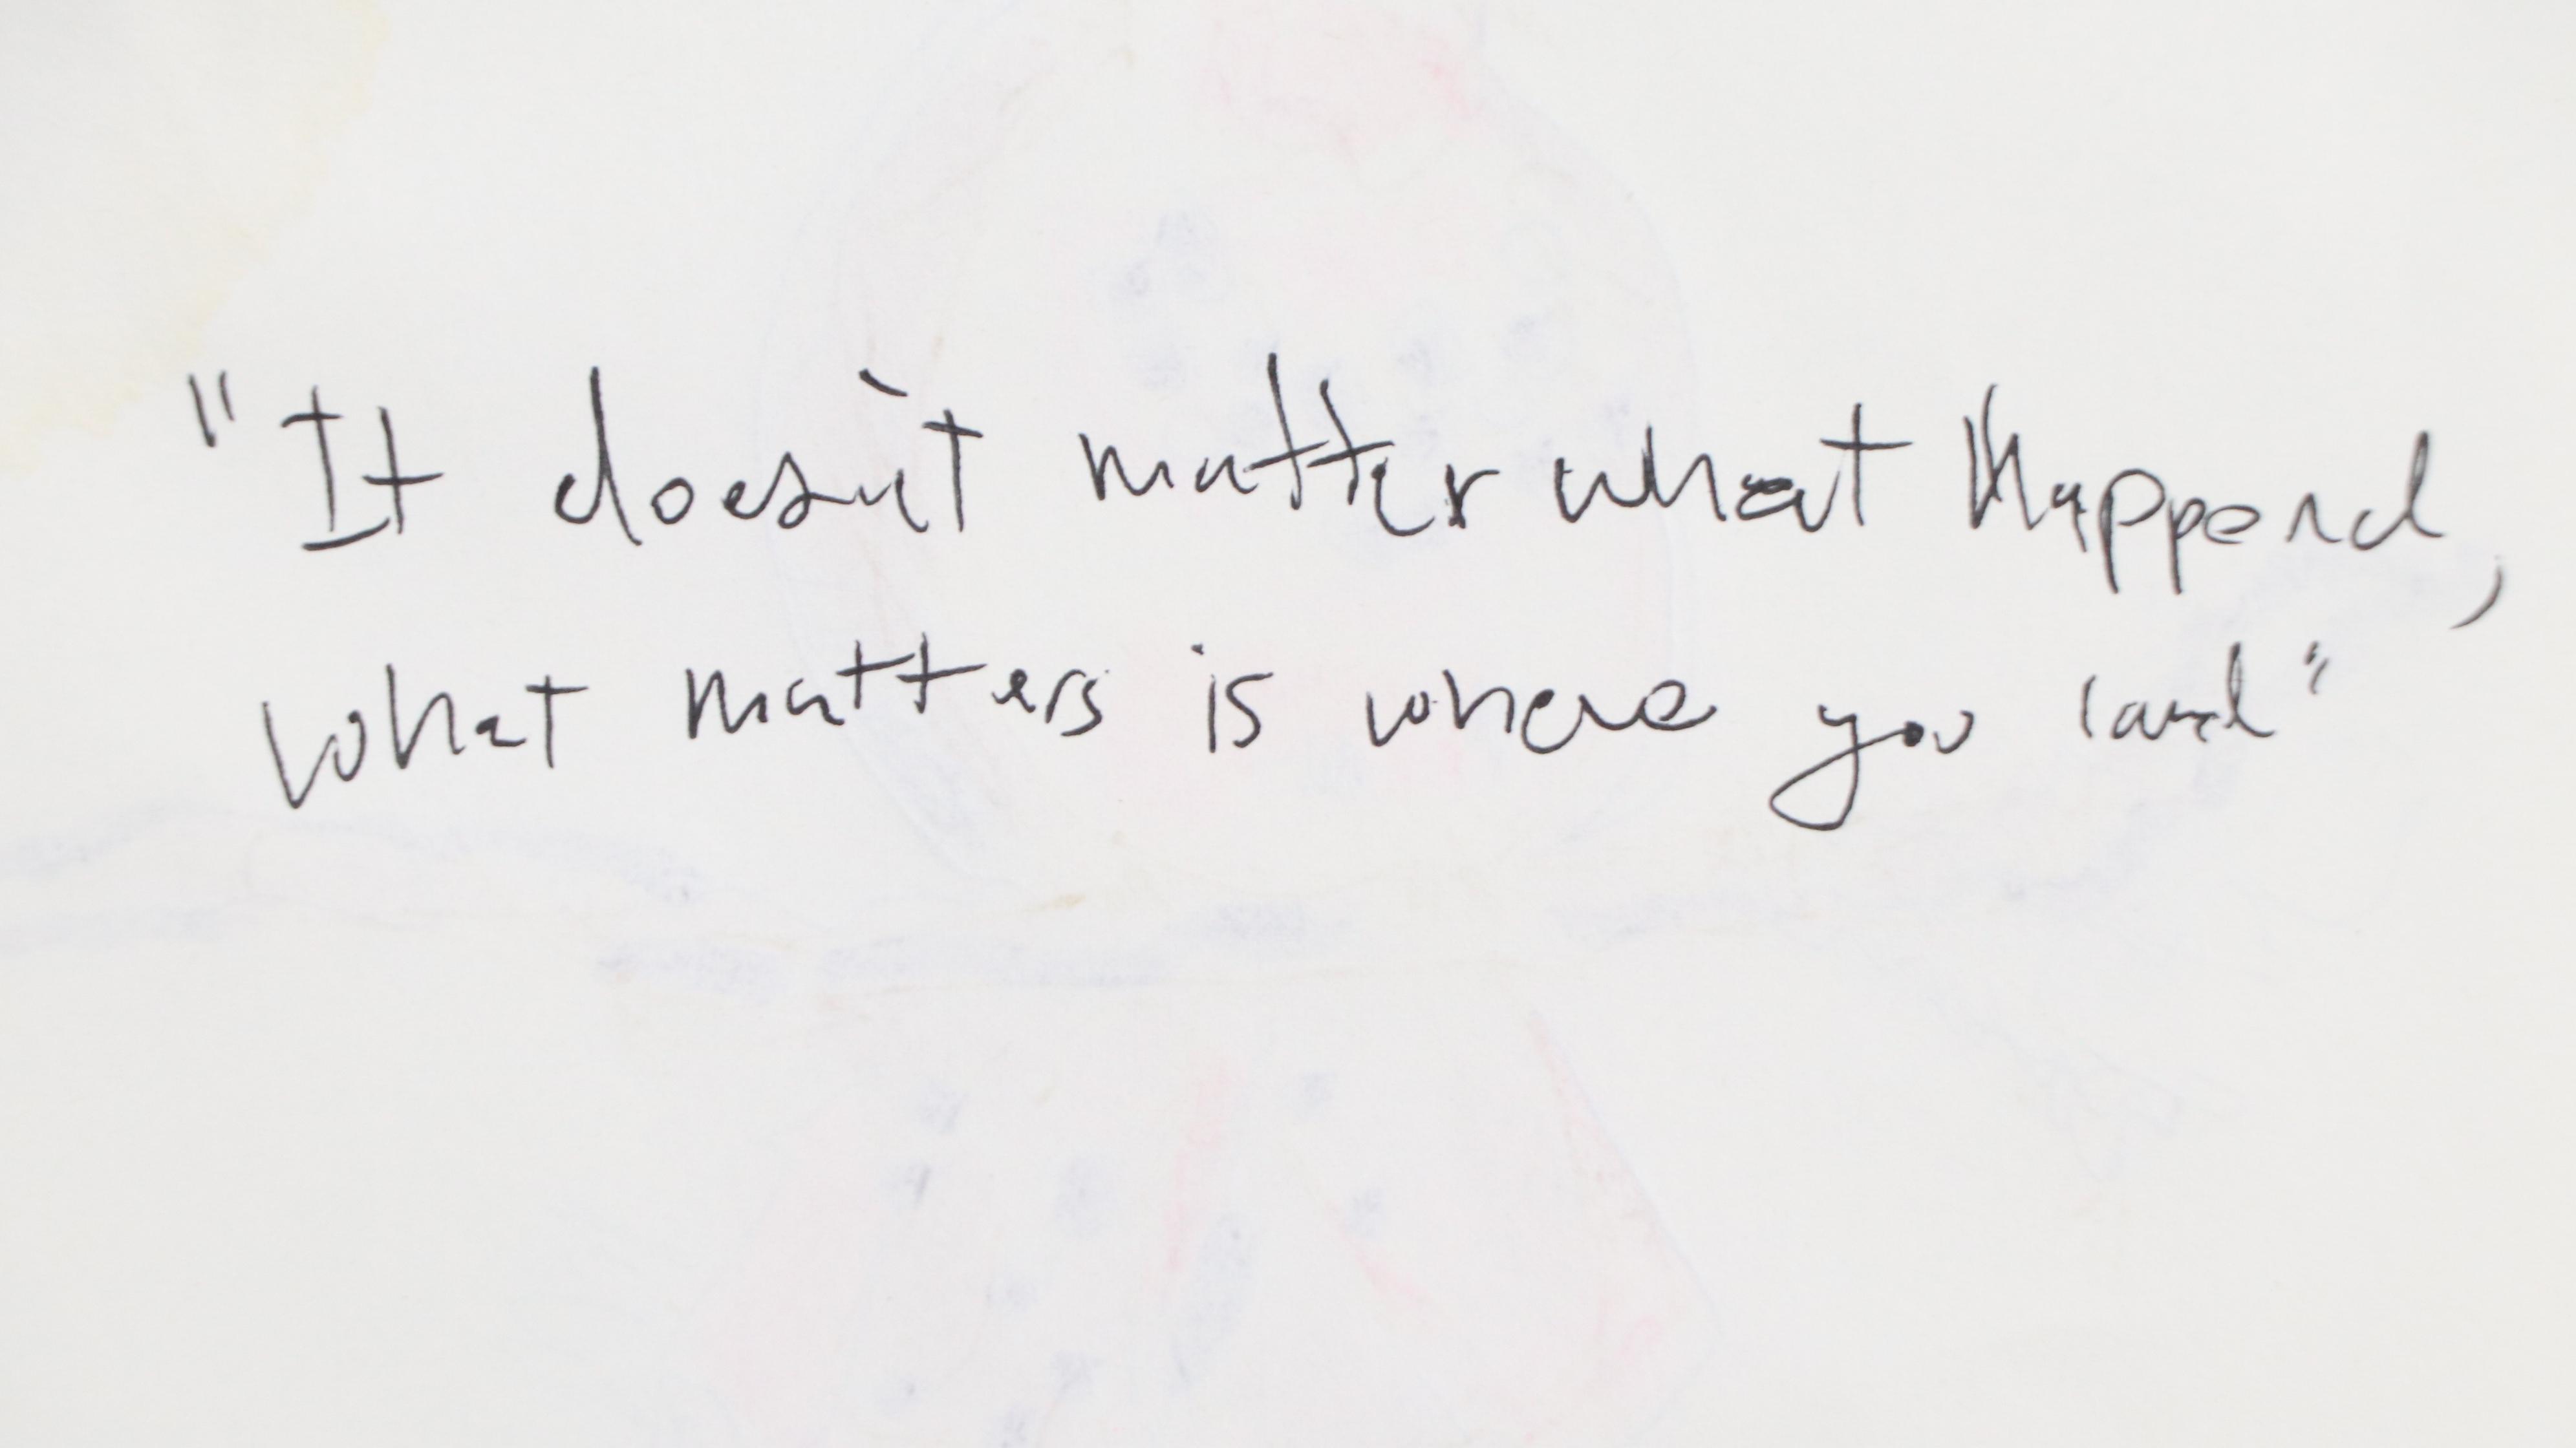 "It doesn't matter what happend,
what matters is where you land"